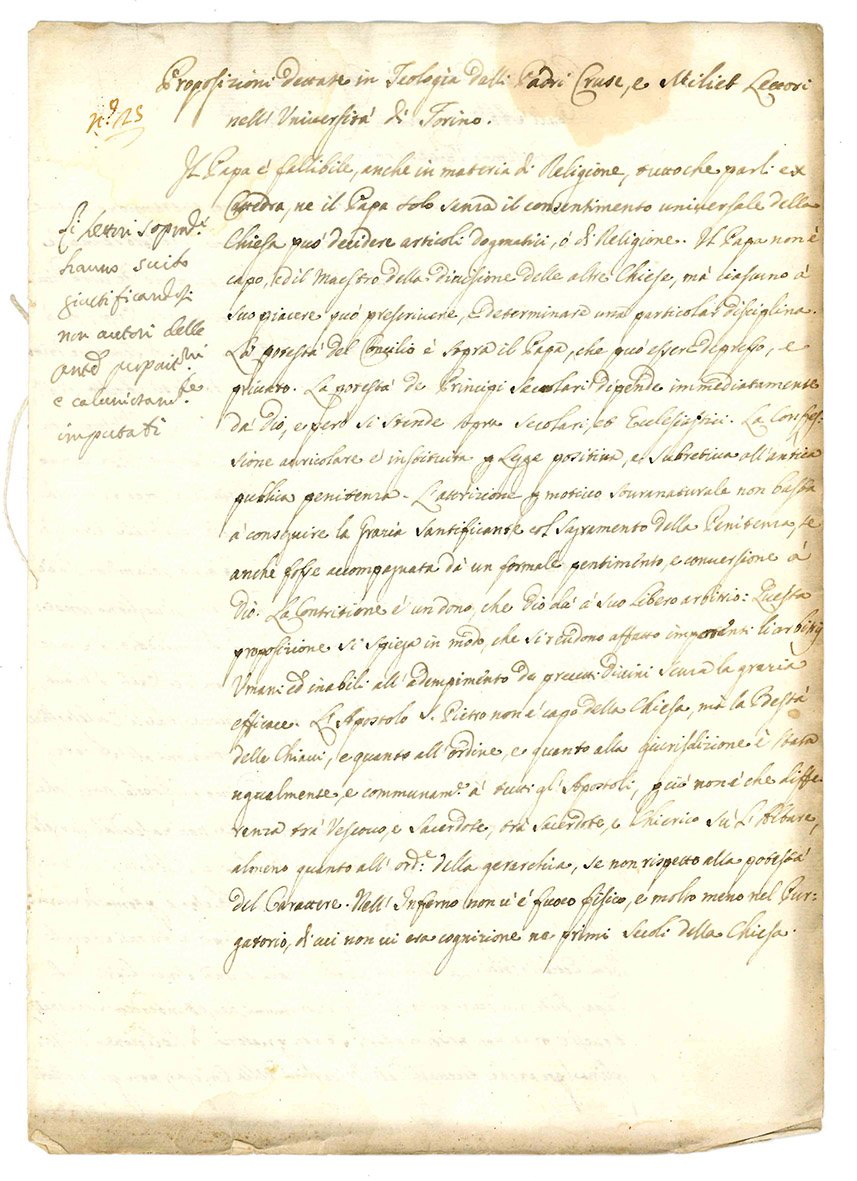 Proposizioni dettate in Teologia dalli Padri Cruse, e Miliet Lettori
nell' Università di Torino.
n.° 25
Il Papa è fallibile, anche in materia di Religione, tuttoche parli ex
Cattedra, ne il Papa solo senza il consentimento universale della
Chiesa può decidere articoli dogmatici, ò di Religione. Il Papa non è
capo, ed il Maestro della divisione delle altre Chiese, mà ciascuno à
suo piacere può prescrivere, e determinare una particolar disciplina.
La potestà del Concilio è sopra il Papa, che può essere depresso, e
privato. La potestà de Principi Secolari dipende immediatamente
dà Dio, e però si stende sopra Secolari, et Ecclesiastici. La Confes-
sione auricolare è instituita p Legge positiva, e subretiva all'antica
publica penitenza. L'attrizione p motivo souranaturale non basta
à conseguire la Grazia Santificante col Sagramento della Penitenza, se
anche fosse accompagnata dà un formale pentimento, e conversione à
Dio. La Contritione è un dono, che Dio dà à suo libero arbitrio: Questa
proposizione si spiega in modo, che si rendono affatto impotenti li arbitrij
Umani ed inabili all'adempimento de precetti Divini senza la grazia
efficace. L'Apostolo S. Pietro non è capo della Chiesa, mà la Potestà
delle Chiavi, e quanto all'ordine, e quanto alla giurisdizione è stata
ugualmente, e communam.e à tutti gl' Apostoli, più non è che diffe-
renza trà Vescovo, e Sacerdote, trà Sacerdote, e Chierico sù l'Altare,
almeno quanto all'ord.e della gerarchia, se non rispetto alla potestà
del Carattere. Nell' Inferno non vi è fuoco fisico, e molto meno nel Pur-
gatorio, di cui non vi era cognizione ne primi Secoli della Chiesa.
Li lettori soprad.i
hanno scrito
giustificandosi
non autori delle
antd.e
e caluniosam.te
imputati